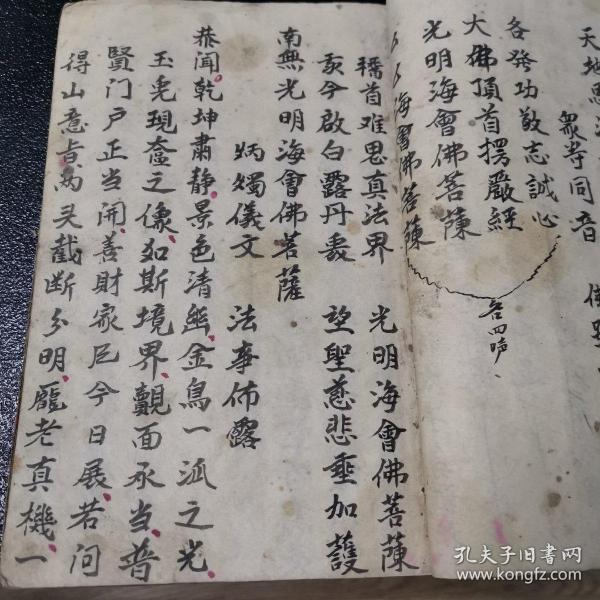 天地恩
眾等同音
各發功敬志誠心
大佛頂首楞嚴經
光明海會佛菩薩
海會佛菩薩
各四声
稽首难思真法界 光明海會佛菩薩
我今啟白露丹衷 望聖慈悲垂加護
南無光明海會佛菩薩
炳燭儀文 法事佈露
恭聞乾坤肅静景色清幽金烏一泒之光
玉兎現奩之像如斯境界覿面承当普
賢门户正当開善財家㐌今日展若问
得山意㫖萬灵截断分明龐老真機一
孔夫子旧书网
www.kongfz.com